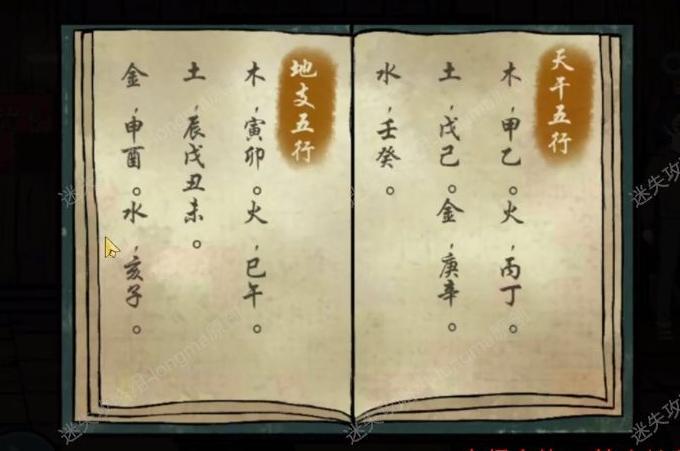 天干五行
木，甲乙。火，丙丁。
土，戊己。金，庚辛。
水，壬癸。
地支五行
木，寅卯。火，巳午。
土，辰戌丑未。
金，申酉。水，亥子。